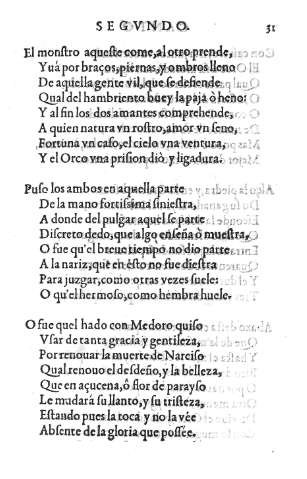 SEGVNDO. 31
El monstro aqueste come, al otro prende,
Y vá por braços, piernas, y ombros lleno
De aquella gente vil, que se defiende
Qual del hambriento buey la paja ò heno:
Y al fin los dos amantes comprehende,
A quien natura vn rostro, amor vn seno,
Fortuna vn caso, el cielo vna ventura,
Y el Orco vna prision diò y ligadura.
Puso los ambos en aquella parte
De la mano fortissima siniestra,
A donde del pulgar aquel se parte
Discreto dedo, que algo enseña ò muestra,
O fue qu'el breue tiempo no dio parte
A la nariz, que en esto no fue diestra
Para juzgar, como otras vezes suele:
O qu'el hermoso, como hembra huele.
O fue quel hado con Medoro quiso
Vsar de tanta gracia y gentileza,
Por renouar la muerte de Narciso
Qual renouo el desdeño, y la belleza,
Que en açucena, ò flor de parayso
Le mudará su llanto, y su tristeza,
Estando pues la toca y no la vèe
Absente de la gloria que possée.